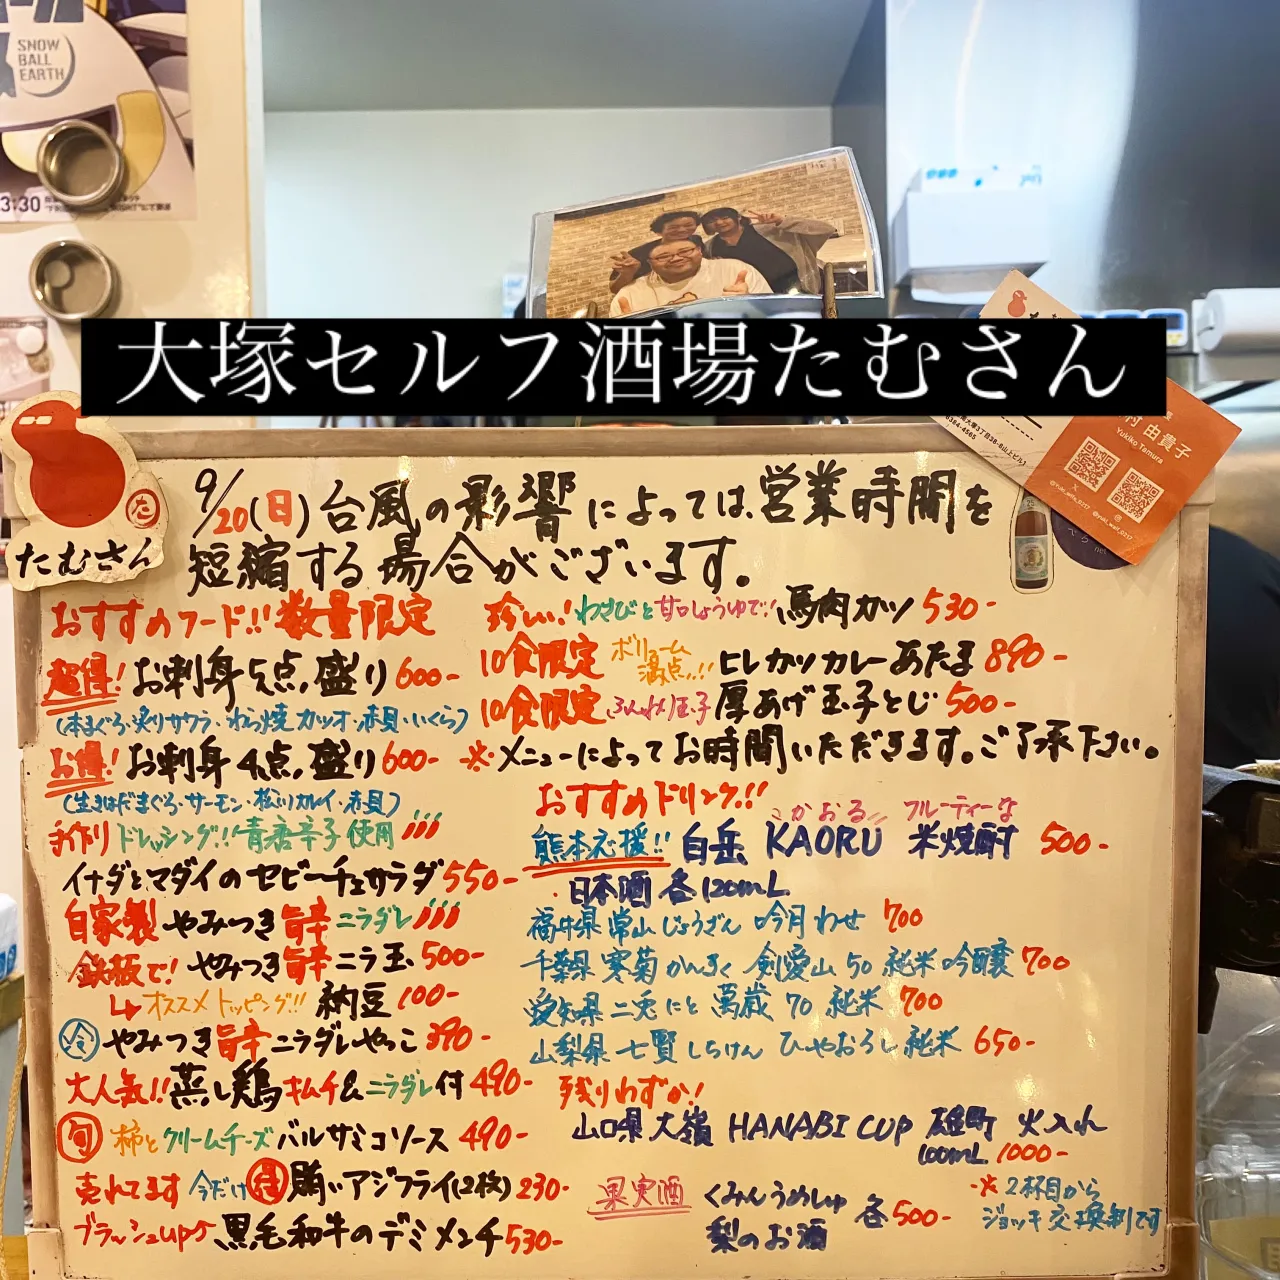 SNOW
BALL
EARTH
3:30
大塚セルフ酒場たむさん
村 由貴子
Yukiko Tamura
たむさん
9/20(日)台風の影響によっては、営業時間を
短縮する場合がございます。
おすすめフード!!数量限定
超得!お刺身5点盛り600-
(本まぐろ・炙りサワラ・わら焼カツオ・赤貝・いくら)
お得!お刺身4点盛り600-
(生きはだまぐろ・サーモン・松川カレイ・赤貝)
手作りドレッシング!!青唐辛子使用
イナダとマダイのセビーチェサラダ550-
自家製やみつき旨辛ニラダレ
鉄板で!やみつき旨辛ニラ玉500-
オススメトッピング!!納豆100-
冷やみつき旨辛ニラダレやっこ390-
大人気!!蒸し鶏キムチ&ニラダレ付490-
旬柿とクリームチーズバルサミコソース490-
売れてます今だけ得賄いアジフライ(2枚)230-
ブラッシュup黒毛和牛のデミメンチ530-
珍しい!わさびと甘口しょうゆで!馬肉カツ530-
10食限定ボリューム満点!!ヒレカツカレーあたま890-
10食限定ふんわり玉子厚あげ玉子とじ500-
※メニューによってお時間いただきます。ご了承下さい。
おすすめドリンク!!
かおる フルーティーな
熊本応援!!白岳 KAORU 米焼酎 500-
・日本酒 各120mL
福井県 常山 じょうざん 吟月 わせ 700
千葉県 寒菊 かんぎく 剣愛山50 純米吟醸 700
愛知県 二兎 にと 萬歳70 純米 700
山梨県 七賢 しちけん ひやおろし 純米 650-
残りわずか!
山口県 大嶺 HANABI CUP 雄町 火入れ
100mL 1000-
果実酒 くみんうめしゅ
梨のお酒 各500-
※2杯目から
ジョッキ交換制です